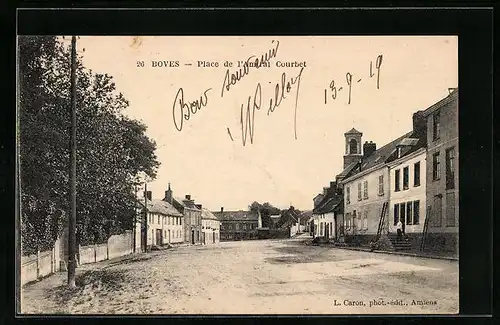 26 BOVES – Place de l'Amiral Courbet
Bon souvenir
13-9-19
L. Caron, phot.-édit., Amiens